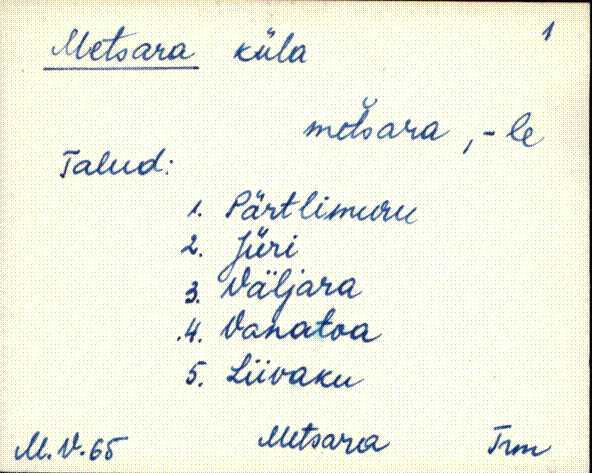 1
Metsara küla
metšara, -le
Talud:
1. Pärtlimuru
2. Jüri
3. Väljara
4. Vanatoa
5. Liivaku
M.V.65 Metsara Trm